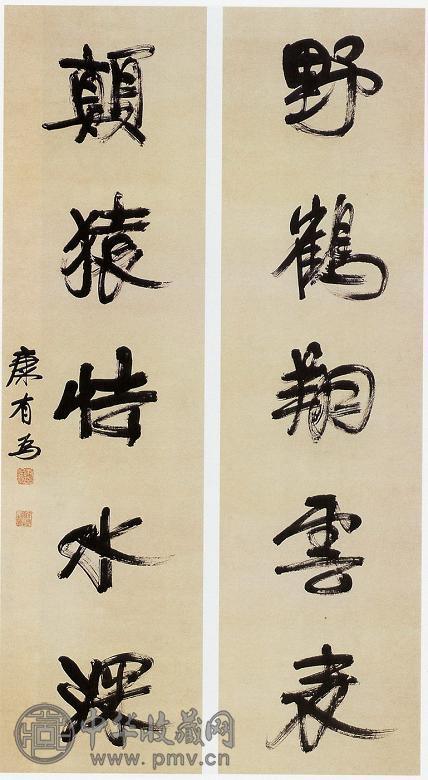 野鶴翔雲表
顛猿怯水深
康有為
中华收藏网
www.pmv.cn